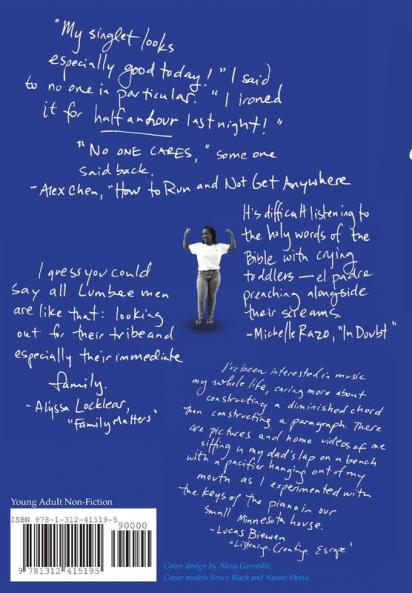 "My singlet looks
especially good today!" I said
to no one in particular. "I ironed
it for half an hour last night!"
"NO ONE CARES," some one
said back.
-Alex Chen, "How to Run and Not Get Anywhere
It's difficult listening to
the holy words of the
Bible with crying
toddlers — el padre
preaching alongside
their screams.
-Michelle Razo, "In Doubt"
I guess you could
say all Lumbee men
are like that: looking
out for their tribe and
especially their immediate
family.
- Alyssa Locklear,
"Family Matters"
I've been interested in music
my whole life, caring more about
constructing a diminished chord
than constructing a paragraph. There
are pictures and home videos of me
sitting in my dad's lap on a bench
with a pacifier hanging out of my
mouth as I experimented with
the keys of the piano in our
small Minnesota house.
-Lucas Biewen
"Listening, Creating, Escape"
Young Adult Non-Fiction
ISBN 978-1-312-41519-5
90000
9 781312 415195
Cover design by Alexa Garreville.
Cover models Bruce Black and Naomi Desta.